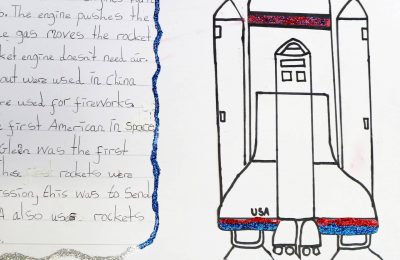 s. The engine pushes the
e gas moves the rocket
ket engine doesn't need air.
out were used in China
re used for fireworks
e first American in Space
Glenn was the first
hese first rockets were
ission, this was to send
A also uses rockets
USA